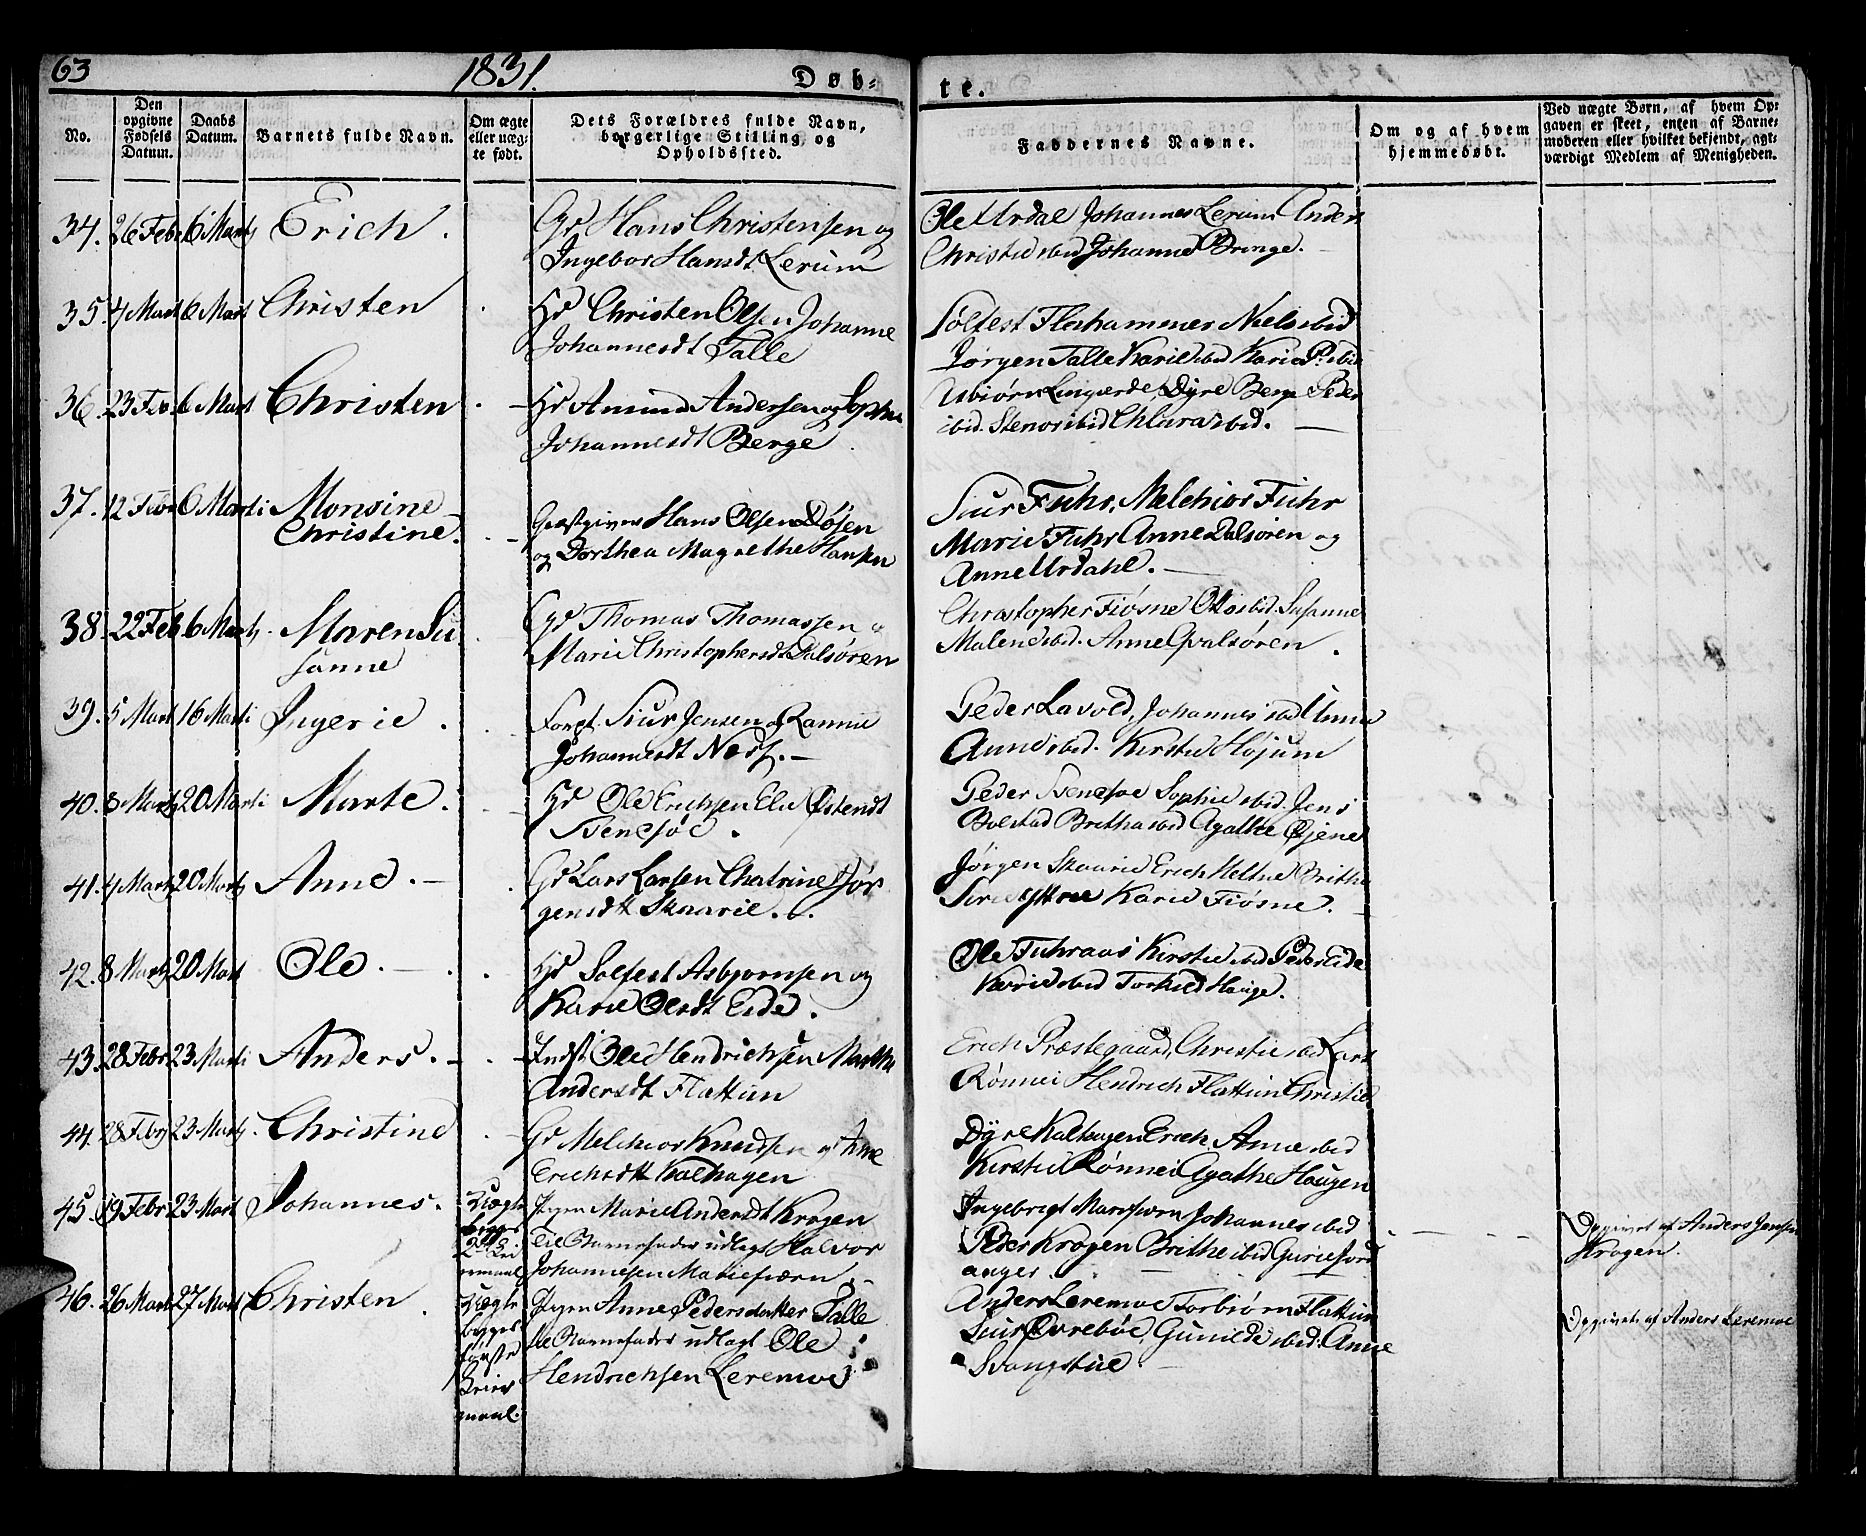 63
1831.
Døb-
te.
No.
Den opgivne Fødsels Datum.
Daabs Datum.
Barnets fulde Navn.
Om ægte eller uægte født.
Dets Forældres fulde Navn, borgerlige Stilling og Opholdssted.
Faddernes Navne.
Om og af hvem hjemmedøbt.
Ved uægte Børn, af hvem Opgaven er skeet, enten af Barnemoderen eller hvilket bekjendt, agtværdigt Medlem af Menigheden.
34. 26 Febr 6 Martj Erich.
Gd Hans Christensen og
Ingebor Hansdt Lerum
Ole Urdal Johannes Lerum Anders
Christie ibid Johanne Bringe.
35. 4 Mart 6 Mart Christen
Hd Christen Olsen Johanne
Johannesdt Talle
Solfest Floshammer Niels ibid
Jørgen Talle Karie ibid Karie P. ibid
36. 23 Feb 6 Mart Christen
Hd Amund Andersen og Sophie
Johannesdt Berge
Asbiørn Dyre Berge Peder
ibid. Steno ibid Chlara ibid.
37. 12 Febr 6 Marti Monsine
Christine.
Giæstgiver Hans Olsen Døsen
og Dorthea Magrethe Hansen
Siur Fuhr, Melchior Fuhr
Marie Fuhr Anne Dalsøren og
Anne Urdahl.
38. 22 Feb 6 Martj. Maren Su
sanne
Gd Thomas Thomassen
Marie Christophersdt Dalsøren
Christopher Fiøsne Otto ibid. Susanne
Malene ibid. Anne Qvalsøren.
39. 5 Mart 16 Marti Ingerie.
Forpt. Siur Jensen og Rannie
Johannesdt Næss.
Peder Lavold, Johannes ibid Unni
Anne ibid. Kirstie Højum
40. 8 Martj 20 Marti Marte.
Hd Ole Erichsen Eli Østendt
Svenesøe.
Peder Svenesøe Sophie ibid. Jens
Bolstad Britha ibid Agathe Øjene
41. 4 Martj 20 Martj Anne.
Gd Lars Larsen Chatrine Jør
gensdt Skaarie.
Jørgen Skaarie Erich Heltne Brithe
Sirie Yttrie Karie Fiøsne.
42. 8 Martj 20 Mart Ole.
Hd Solfest Asbjørnsen og
Karie Olesdt Eide.
Ole Fuhraas Kirstie ibid Peder Eide
Karie ibid Torkild Houge.
43. 28 Febr 23 Marti Anders.
Indst. Ole Hendrichsen Marthe
Andersdt Flattun
Erich Præstegaard, Christie ibid Lars
Rønnei Hendrich Flattun Christie
44. 28 Febrj 23 Martj. Christine
Gd Melchior Knudsen og Anne
Erichsdt Kalhagen
Dyre Kalhagen Erich, Anne ibid
Kirstie Rønnei Agathe Haugen
45. 19 Febr 23 Mart Johannes.
Uægte
begges
2det Lei
ermaal
Pigen Marie Andersdt Krogen
til Barnefader udlagt Halvor
Johannesen Marifiærn.
Ingebrigt Marifiærn Johannes ibid
Peder Krogen Brithe ibid Gurie
anger.
Opgivet af Anders Jensen
Krogen.
46. 26 Mart 27 Mart Christen.
Uægte
begges
første
Leier
maal.
Pigen Anne Pedersdatter Talle
til Barnefader udlagt Ole
Hendrichsen Leremoe
Anders Leremoe Torbiørn Flattun
Siur Øvrebøe, Gunilde ibid. Anne
Svangstue.
Opgivet af Anders Leremoe